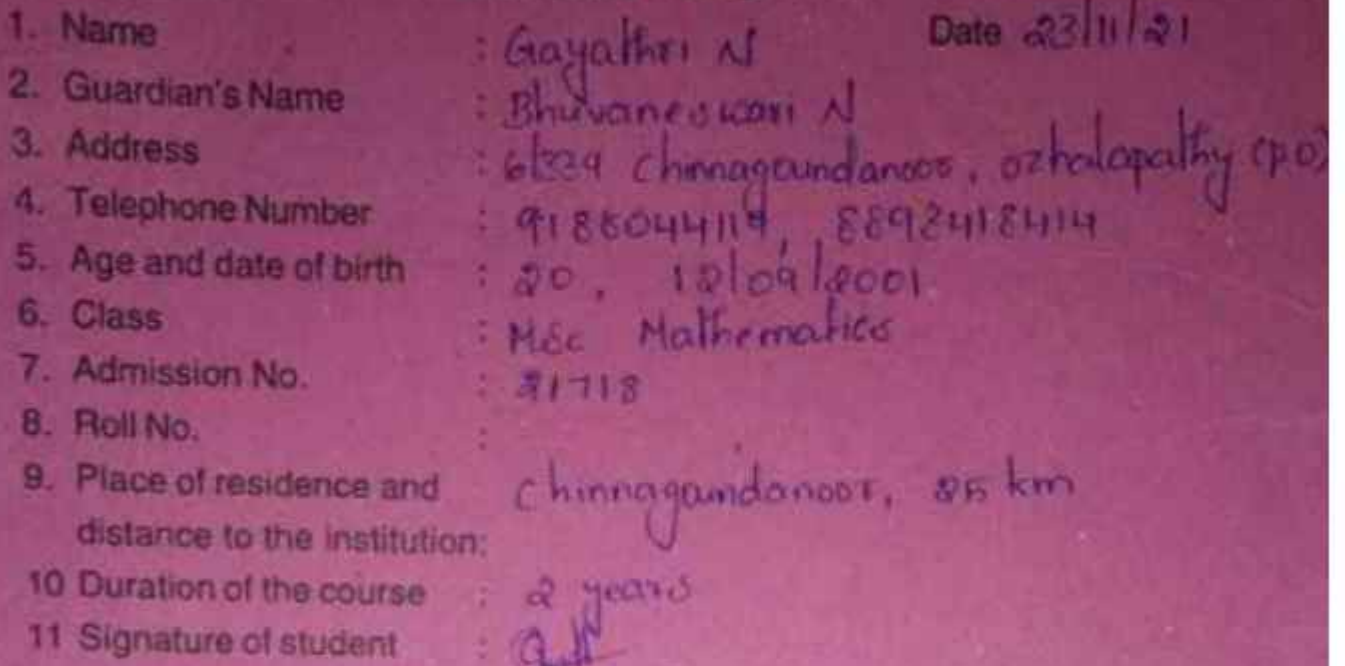 1. Name : Gayathri N Date 23/11/21
2. Guardian's Name : Bhuvaneswari N
3. Address : Chinnagaundanoor, ozhalapathy (p.o)
4. Telephone Number : 8892418414
5. Age and date of birth : 20, 12/09/2001
6. Class : MSc Mathematics
7. Admission No. : 21718
8. Roll No. :
9. Place of residence and Chinnagaundanoor, 25 km
distance to the institution:
10 Duration of the course : 2 years
11 Signature of student :